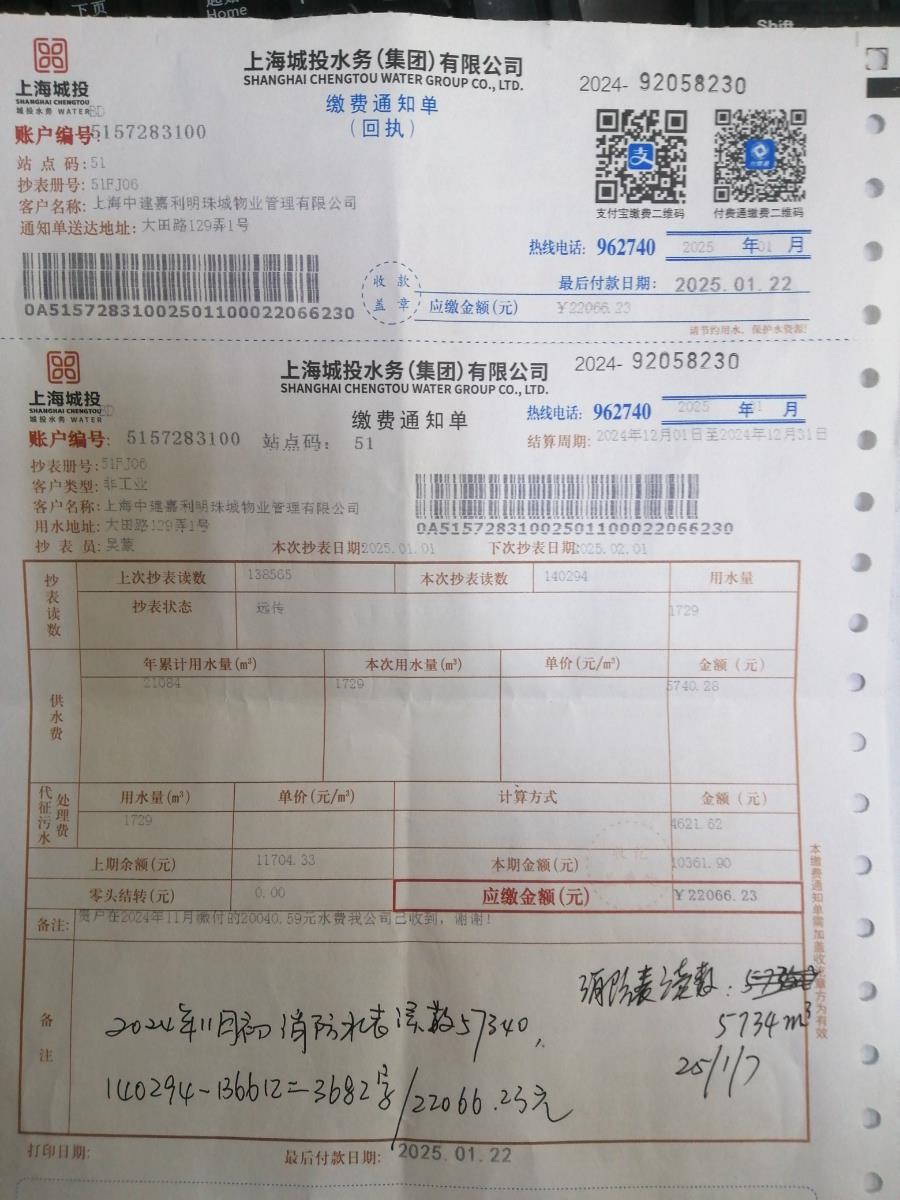 下页
Home
Shift
上海城投
SHANGHAI CHENGTOU
城投水务 WATER
上海城投水务(集团)有限公司
SHANGHAI CHENGTOU WATER GROUP CO., LTD.
缴费通知单
(回执)
2024- 92058230
账户编号: 5157283100
站点码: 51
抄表册号: 51FJ06
客户名称: 上海中建嘉利明珠城物业管理有限公司
通知单送达地址: 大田路129弄1号
支付宝缴费二维码
付费通缴费二维码
热线电话: 962740 2025 年 01 月
最后付款日期: 2025.01.22
0A51572831002501100022066230
收款
盖章
应缴金额(元) ¥22066.23
请节约用水, 保护水资源!
上海城投
SHANGHAI CHENGTOU
城投水务 WATER
上海城投水务(集团)有限公司
SHANGHAI CHENGTOU WATER GROUP CO., LTD.
缴费通知单
2024- 92058230
热线电话: 962740 2025 年 1 月
账户编号: 5157283100 站点码: 51
结算周期: 2024年12月01日至2024年12月31日
抄表册号: 51FJ06
客户类型: 非工业
客户名称: 上海中建嘉利明珠城物业管理有限公司
用水地址: 大田路129弄1号
0A51572831002501100022066230
抄表员: 吴蒙 本次抄表日期: 2025.01.01 下次抄表日期: 2025.02.01
抄表读数
上次抄表读数 138565 本次抄表读数 140294 用水量
抄表状态 远传 1729
供水费
年累计用水量(m³) 本次用水量(m³) 单价(元/m³) 金额(元)
21084 1729 5740.28
代征污水处理费
用水量(m³) 单价(元/m³) 计算方式 金额(元)
1729 4621.62
上期余额(元) 11704.33 本期金额(元) 10361.90
零头结转(元) 0.00 应缴金额(元) ¥22066.23
备注: 贵户在2024年11月缴付的20040.59元水费我公司已收到, 谢谢!
本缴费通知单需加盖收讫章方为有效
备注
消防表读数:
5734m³
25/1/7
2024年11月初消防水表读数57340,
140294-136612=3682字/22066.23元
打印日期: 最后付款日期: 2025.01.22